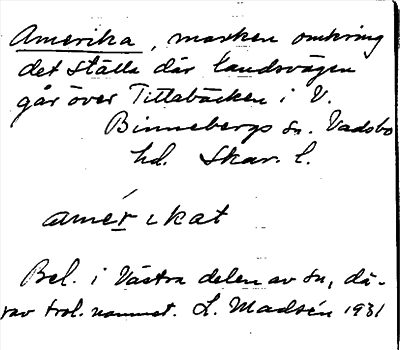 Amerika, marken omkring
det ställe där landsvägen
går över Tittabäcken i V.
Binnebergs sn. Vadsbo
hd. Skar. l.
amérikat
Bel. i Västra delen av sn, dä-
rav trol. namnet. L. Madsén 1931